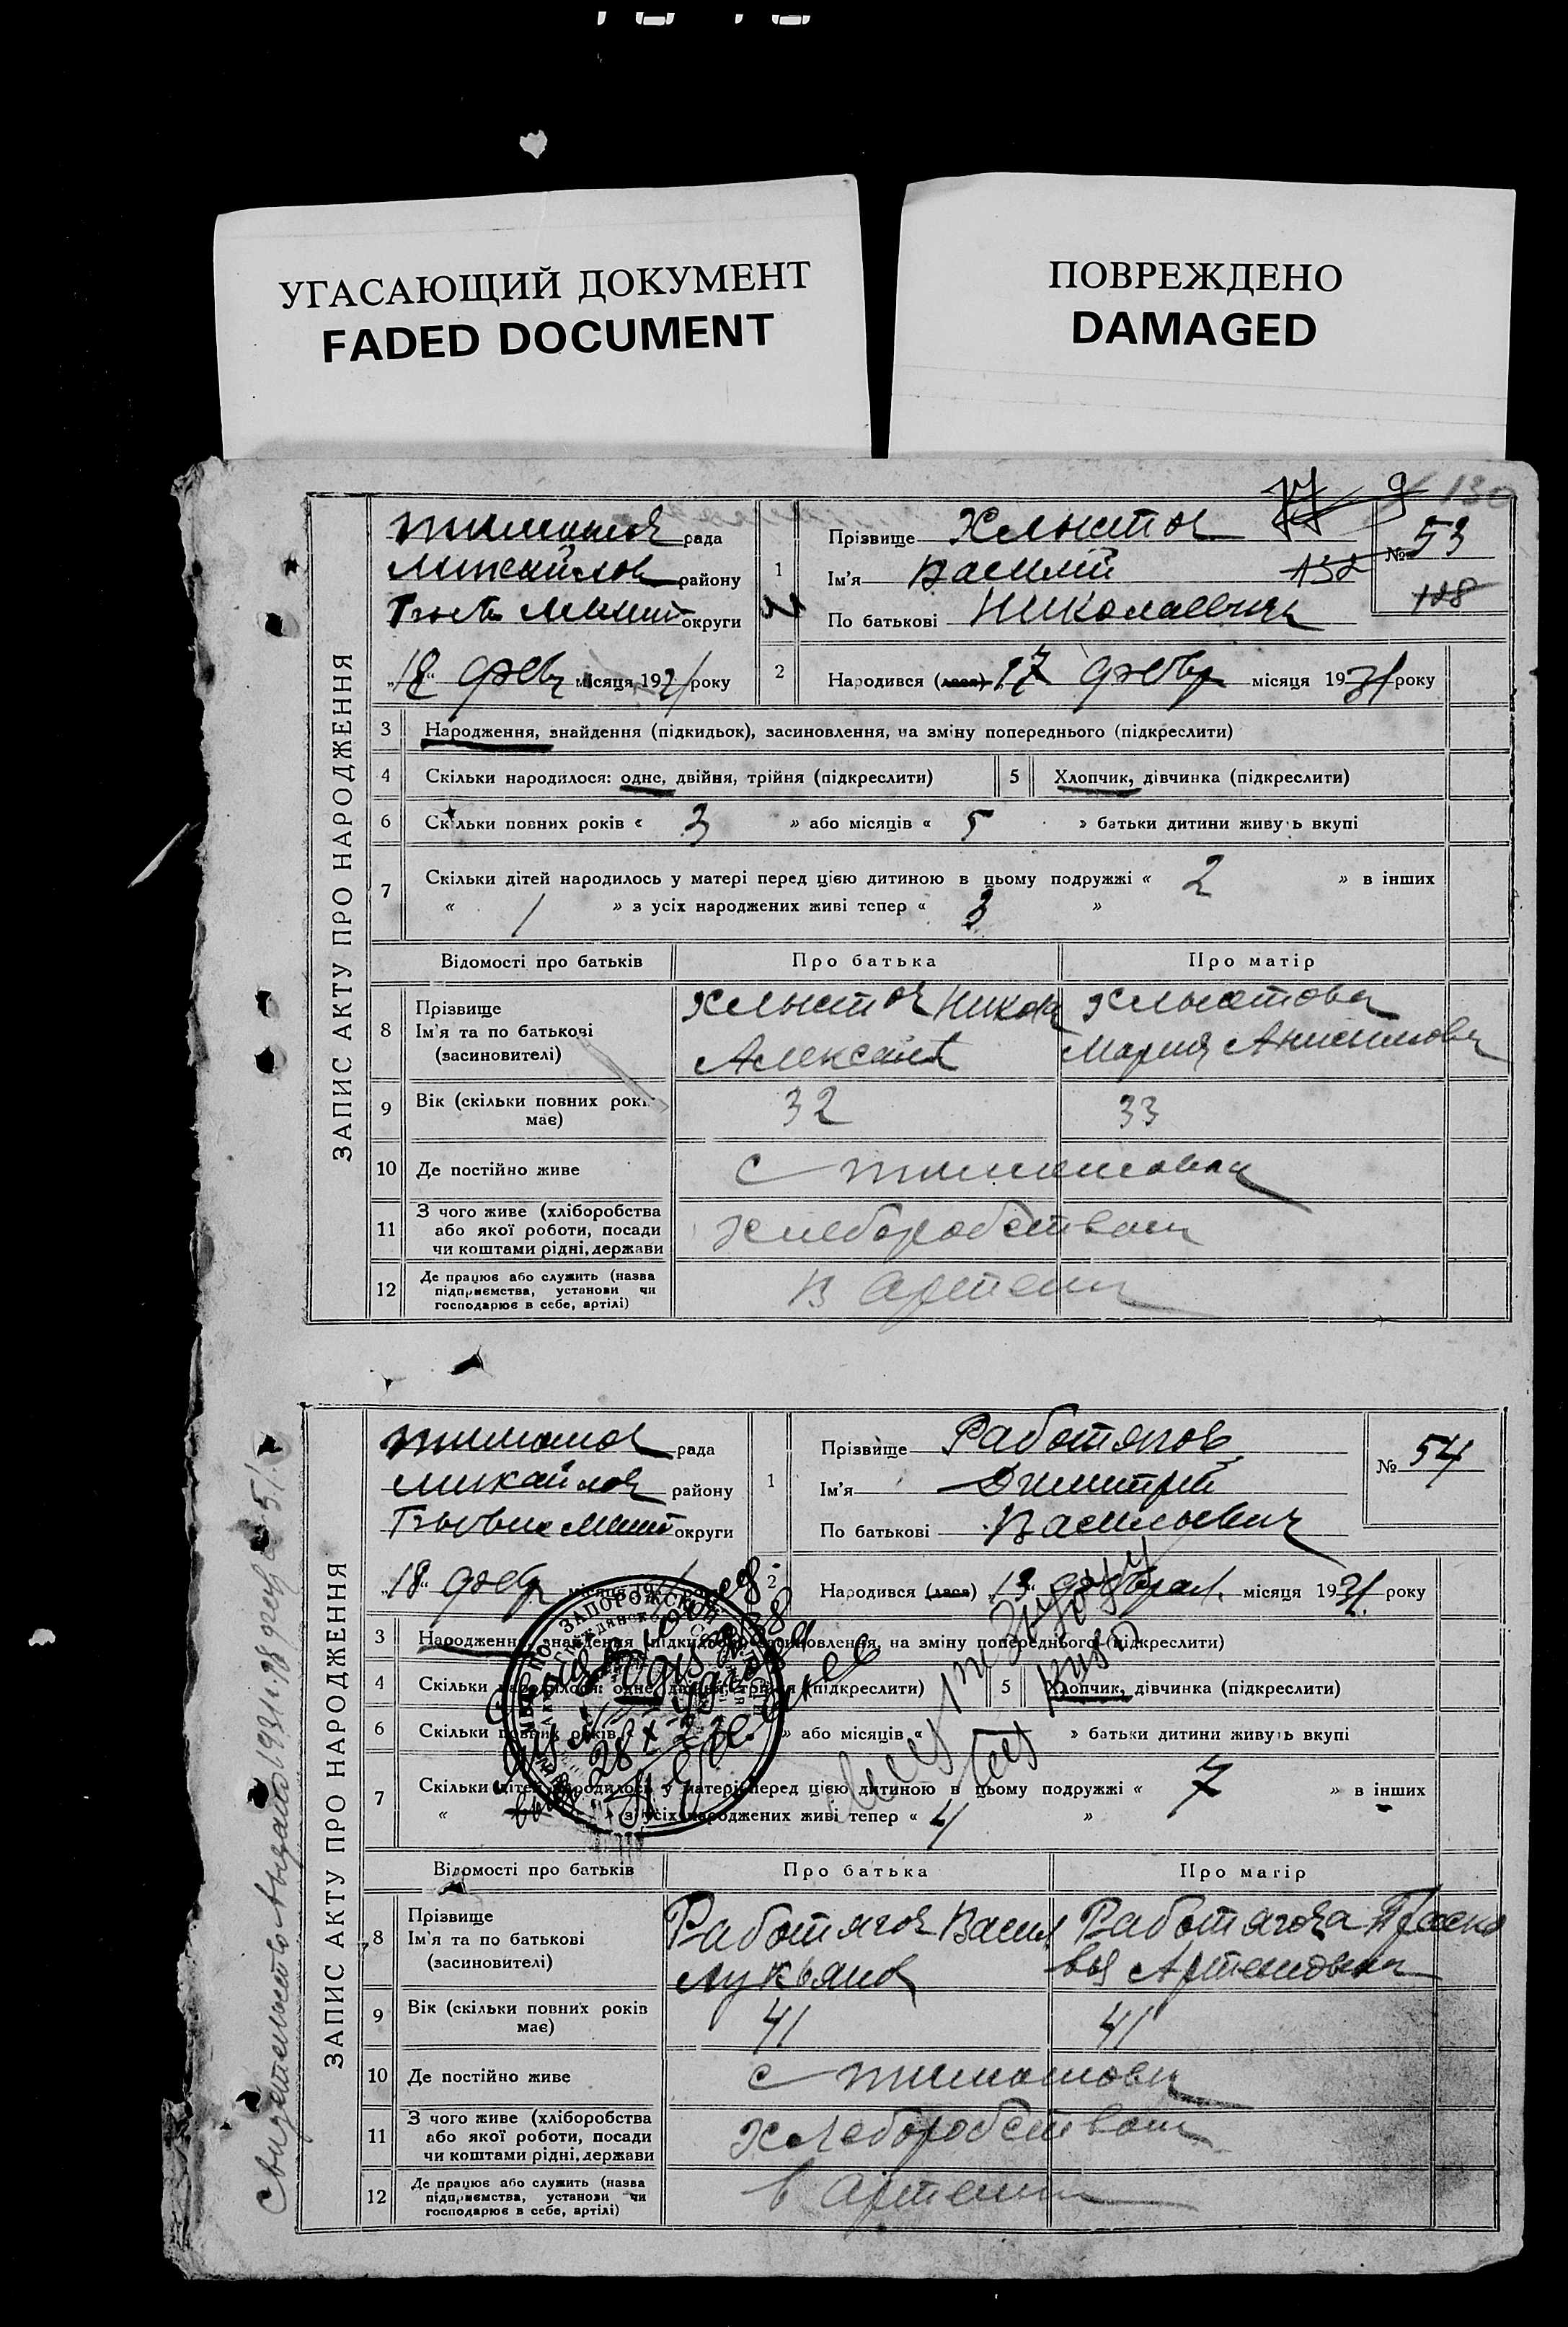 УГАСАЮЩИЙ ДОКУМЕНТ
FADED DOCUMENT
ПОВРЕЖДЕНО
DAMAGED
9 130
ЗАПИС АКТУ ПРО НАРОДЖЕННЯ
рада
Михайлов району
округи
„18“ февр місяця 1931 року
1
Прізвище Хлыстов
Ім'я Василий
По батькові Николаевич
132
№ 53
108
2 Народився (лася) 17 февр місяця 1931 року
3 Народження, знайдення (підкидьок), засиновлення, на зміну попереднього (підкреслити)
4 Скільки народилося: одне, двійня, трійня (підкреслити) 5 Хлопчик, дівчинка (підкреслити)
6 Скільки повних років « 3 » або місяців « 5 » батьки дитини живуть вкупі
7 Скільки дітей народилось у матері перед цією дитиною в цьому подружжі « 2 » в інших
« 1 » з усіх народжених живі тепер « 3 »
Відомості про батьків Про батька Про матір
8 Прізвище
Ім'я та по батькові
(засновителі)
Хлыстов Никол
Алексеев
Хлыстова
Мария Анисимовна
9 Вік (скільки повних років має) 32 33
10 Де постійно живе с Тимошовка
11 З чого живе (хліборобства
або якої роботи, посади
чи коштами рідні, держави
Хлеборобством
12 Де працює або служить (назва
підприємства, установи чи
господарює в себе, артілі)
В Артели
ЗАПИС АКТУ ПРО НАРОДЖЕННЯ
рада
Михайлов району
округи
„18“ февр місяця 19 року
1
Прізвище Работягов
Ім'я Димитрий
По батькові Васильевич
№ 54
2 Народився (лася) февраля місяця 1931 року
3 Народження, знайдення (підкидьок), засиновлення, на зміну попереднього (підкреслити)
4 Скільки народилося: одне, двійня, трійня (підкреслити) 5 Хлопчик, дівчинка (підкреслити)
6 Скільки повних років « » або місяців « » батьки дитини живуть вкупі
7 Скільки дітей народилось у матері перед цією дитиною в цьому подружжі « 7 » в інших
« » з усіх народжених живі тепер « 4 »
ЗАПОРОЖСКОЙ
Відомості про батьків Про батька Про матір
8 Прізвище
Ім'я та по батькові
(засиновителі)
Работягов Васил
Лукьянов
Работягова Праско
вья Артемовна
9 Вік (скільки повних років має) 41 41
10 Де постійно живе с Тимошовка
11 З чого живе (хліборобства
або якої роботи, посади
чи коштами рідні, держави
Хлеборобством
12 Де працює або служить (назва
підприємства, установи чи
господарює в себе, артілі)
в Артели
Свидетельство выдано